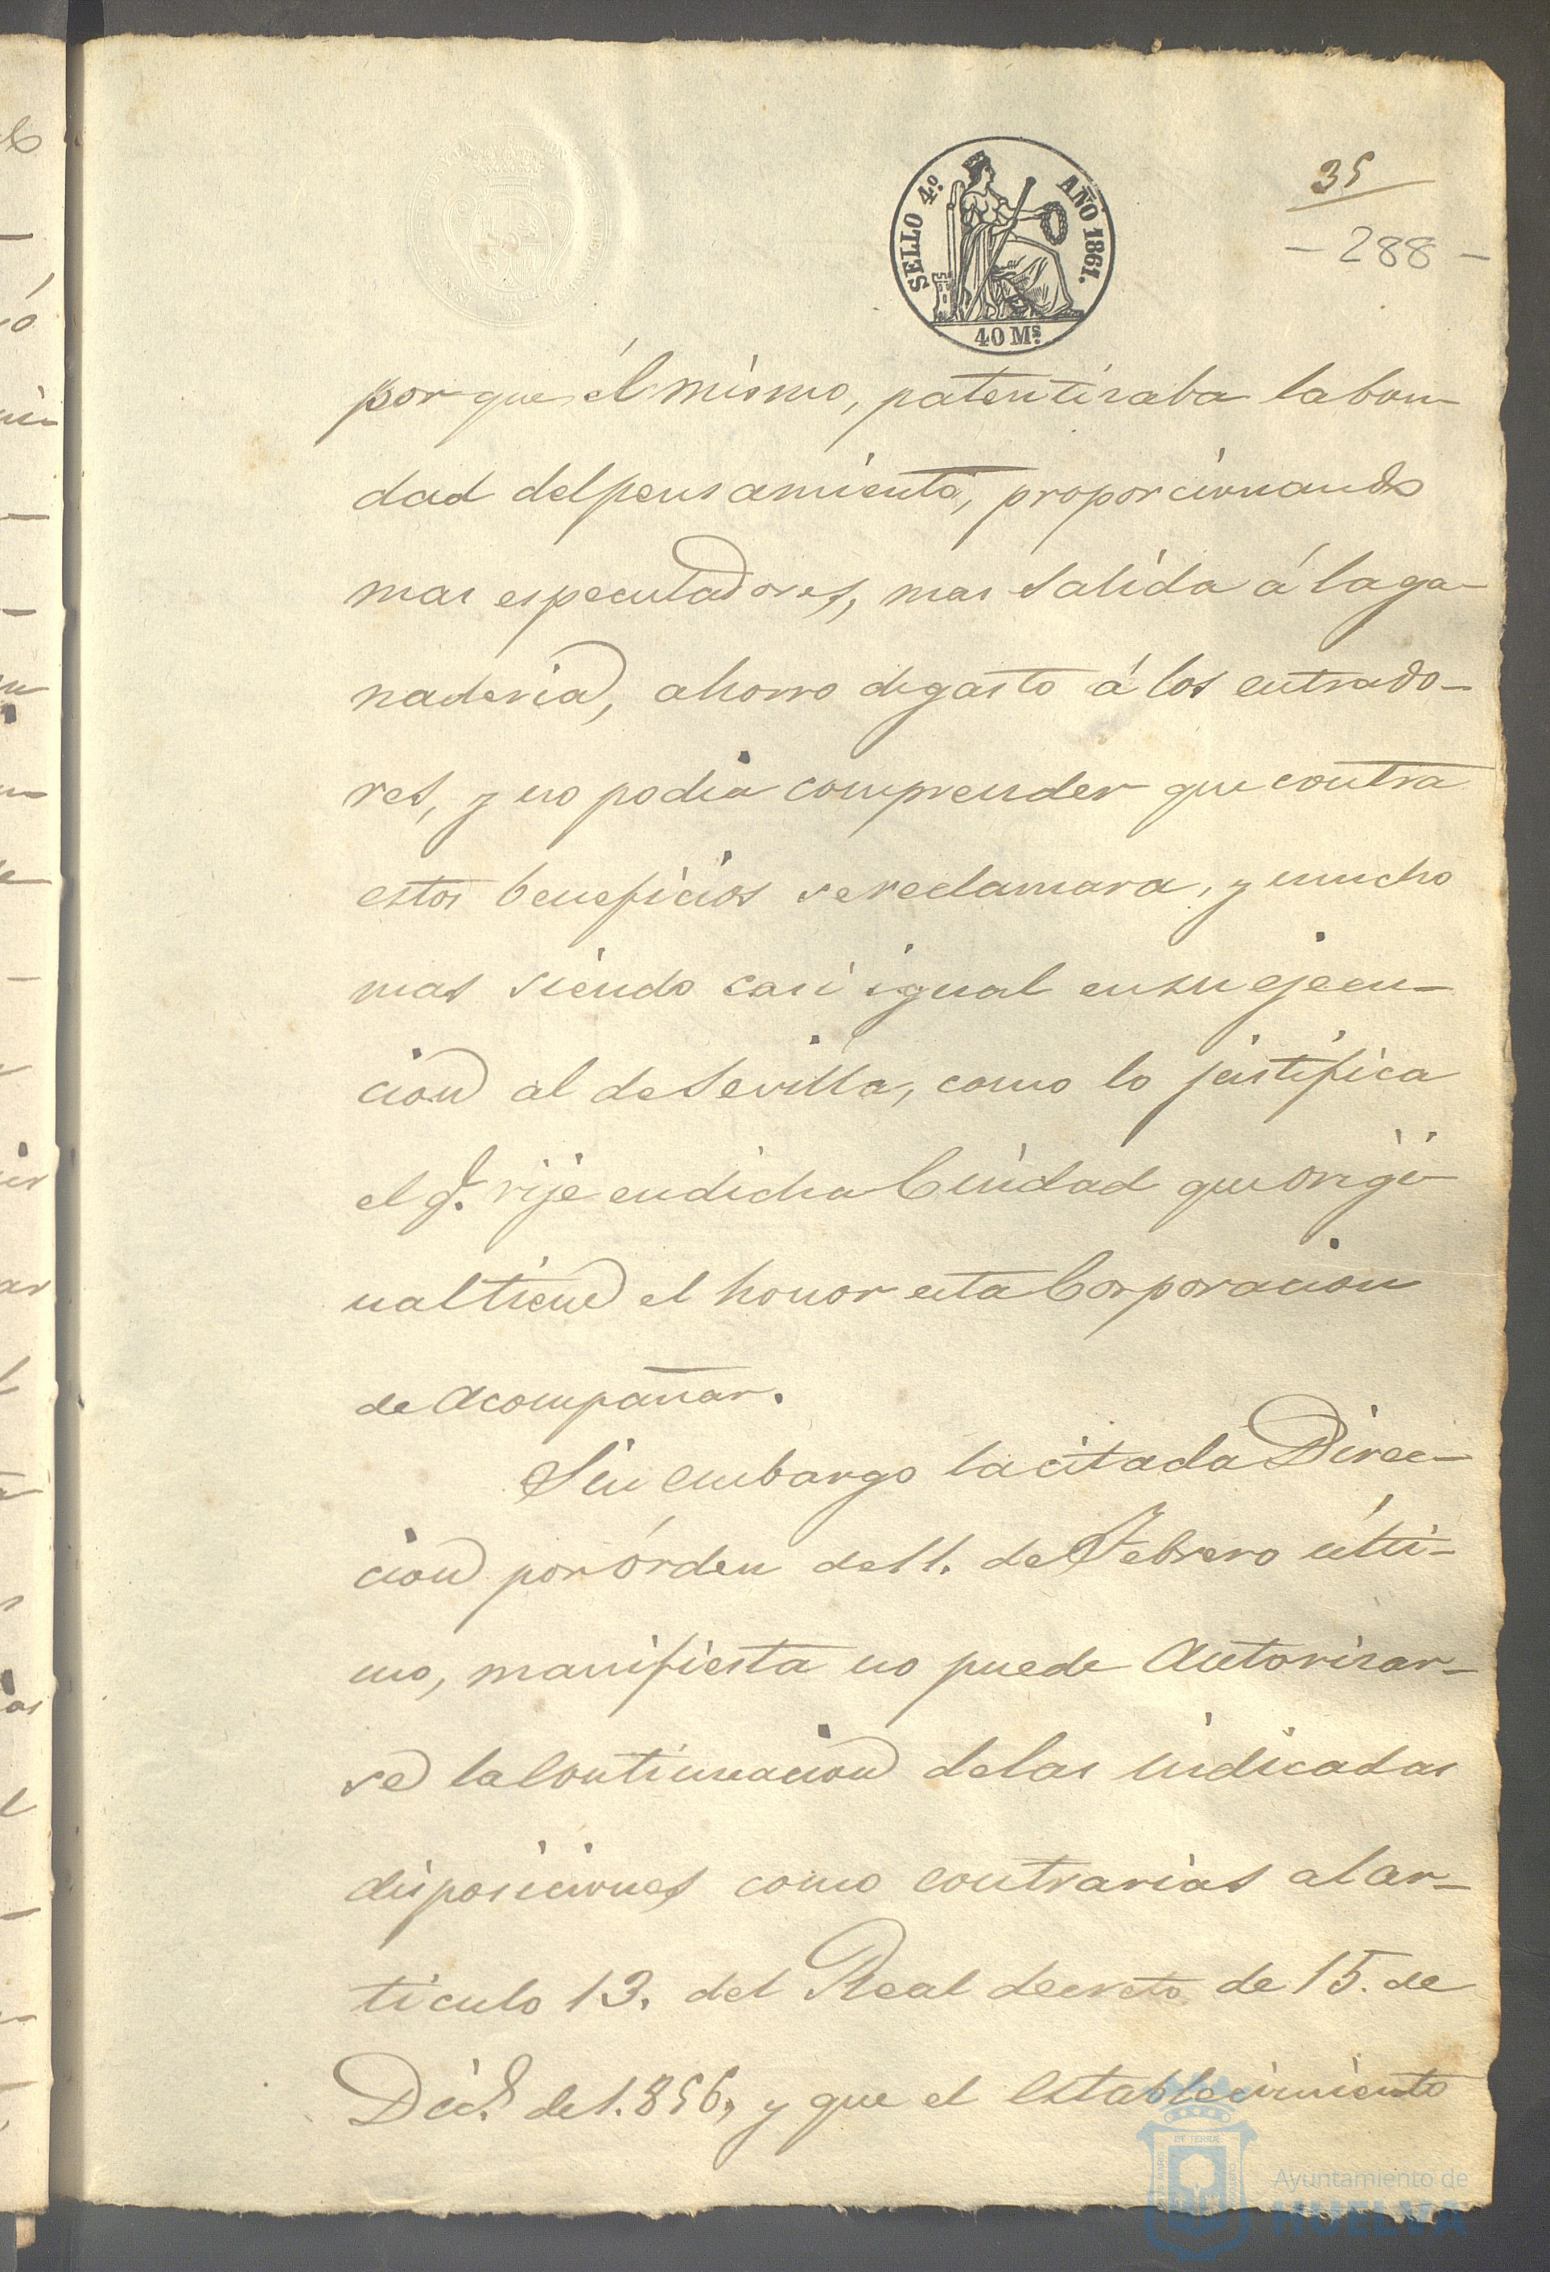 SELLO 4.º AÑO 1861.
40 Ms.
35
- 288 -
por que él mismo, patentizaba la bon-
dad del pensamiento, proporcionando
mas especuladores, mas salida á la ga-
naderia, ahorro de gasto á los entrado-
res, y no podia comprender que contra
estos beneficios se reclamara, y mucho
mas siendo casi igual en su ejecu-
cion al de Sevilla, como lo justifica
el q.e rije en dicha Ciudad que origi-
nal tiene el honor esta Corporacion
de acompañar.
Sin embargo la citada Direc-
cion por órden de 11. de Febrero últi-
mo, manifiesta no puede autorizar-
se la continuacion de las indicadas
disposiciones como contrarias al ar-
ticulo 13. del Real decreto de 15. de
Dic.e de 1.856, y que el establecimiento
Ayuntamiento de
HUELVA